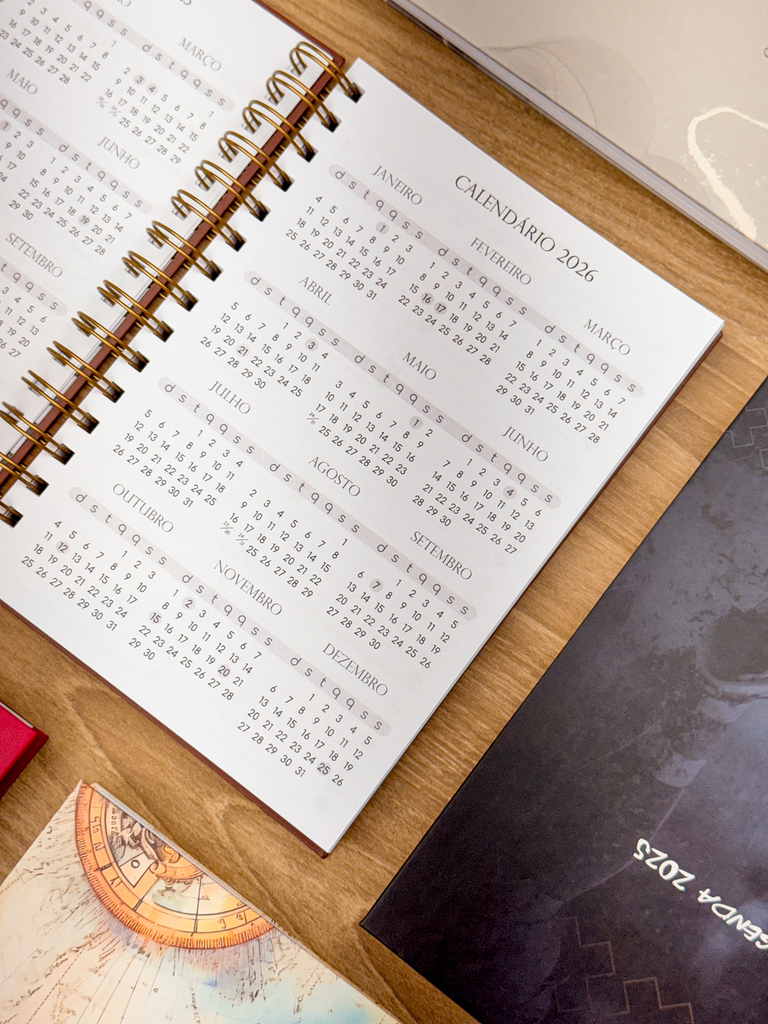 MARÇO
d s t q q s s
1
2 3 4 5 6 7 8
9 10 11 12 13 14 15
16 17 18 19 20 21 22
23/30 24/31 25 26 27 28 29
MAIO
JUNHO
d s t q q s s
1 2 3 4 5 6 7
8 9 10 11 12 13 14
15 16 17 18 19 20 21
22 23 24 25 26 27 28
29 30
SETEMBRO
CALENDÁRIO 2026
JANEIRO
d s t q q s s
1 2 3
4 5 6 7 8 9 10
11 12 13 14 15 16 17
18 19 20 21 22 23 24
25 26 27 28 29 30 31
FEVEREIRO
d s t q q s s
1 2 3 4 5 6 7
8 9 10 11 12 13 14
15 16 17 18 19 20 21
22 23 24 25 26 27 28
MARÇO
d s t q q s s
1 2 3 4 5 6 7
8 9 10 11 12 13 14
15 16 17 18 19 20 21
22 23 24 25 26 27 28
29 30 31
ABRIL
d s t q q s s
1 2 3 4
5 6 7 8 9 10 11
12 13 14 15 16 17 18
19 20 21 22 23 24 25
26 27 28 29 30
MAIO
d s t q q s s
1 2
3 4 5 6 7 8 9
10 11 12 13 14 15 16
17 18 19 20 21 22 23
24/31 25 26 27 28 29 30
JUNHO
d s t q q s s
1 2 3 4 5 6
7 8 9 10 11 12 13
14 15 16 17 18 19 20
21 22 23 24 25 26 27
28 29 30
JULHO
d s t q q s s
1 2 3 4
5 6 7 8 9 10 11
12 13 14 15 16 17 18
19 20 21 22 23 24 25
26 27 28 29 30 31
AGOSTO
d s t q q s s
1
2 3 4 5 6 7 8
9 10 11 12 13 14 15
16 17 18 19 20 21 22
23/30 24/31 25 26 27 28 29
SETEMBRO
d s t q q s s
1 2 3 4 5
6 7 8 9 10 11 12
13 14 15 16 17 18 19
20 21 22 23 24 25 26
27 28 29 30
OUTUBRO
d s t q q s s
1 2 3
4 5 6 7 8 9 10
11 12 13 14 15 16 17
18 19 20 21 22 23 24
25 26 27 28 29 30 31
NOVEMBRO
d s t q q s s
1 2 3 4 5 6 7
8 9 10 11 12 13 14
15 16 17 18 19 20 21
22 23 24 25 26 27 28
29 30
DEZEMBRO
d s t q q s s
1 2 3 4 5
6 7 8 9 10 11 12
13 14 15 16 17 18 19
20 21 22 23 24 25 26
27 28 29 30 31
GENDA 2025